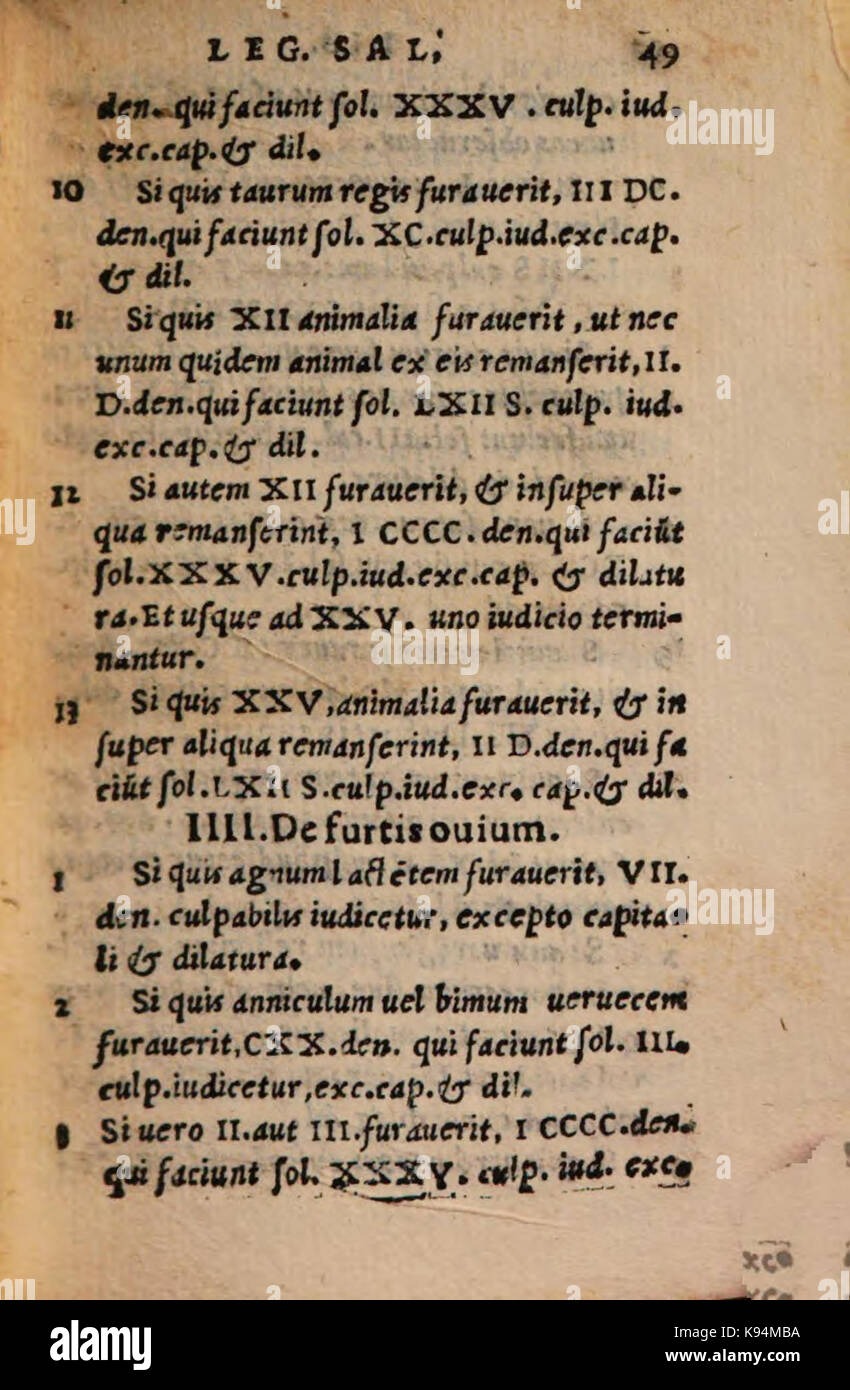 LEG. SAL. 49
den. qui faciunt ſol. XXXV. culp. iud.
exc.cap.& dil.
10 Si quis taurum regis furauerit, III DC.
den.qui faciunt ſol. XC.culp.iud.exc.cap.
& dil.
11 Si quis XII animalia furauerit, ut nec
unum quidem animal ex eis remanſerit, II.
D.den.qui faciunt ſol. LXII S. culp. iud.
exc.cap.& dil.
12 Si autem XII furauerit, & inſuper ali-
qua remanſerint, I CCCC. den.qui faciūt
ſol.XXXV.culp.iud.exc.cap. & dilatu
ra. Et uſque ad XXV. uno iudicio termi-
nantur.
13 Si quis XXV, animalia furauerit, & in
ſuper aliqua remanſerint, II D.den.qui fa
ciūt ſol.LXII S.culp.iud.exc. cap.& dil.
IIII. De furtis ouium.
1 Si quis agnum lactētem furauerit, VII.
den. culpabilis iudicetur, excepto capita-
li & dilatura.
2 Si quis anniculum uel bimum ueruecem
furauerit, CXX.den. qui faciunt ſol. III.
culp.iudicetur, exc.cap.& dil.
Si uero II.aut III.furauerit, I CCCC.den.
qui faciunt ſol. XXXV. culp. iud. exc.
alamy
Image ID: K94MBA
www.alamy.com